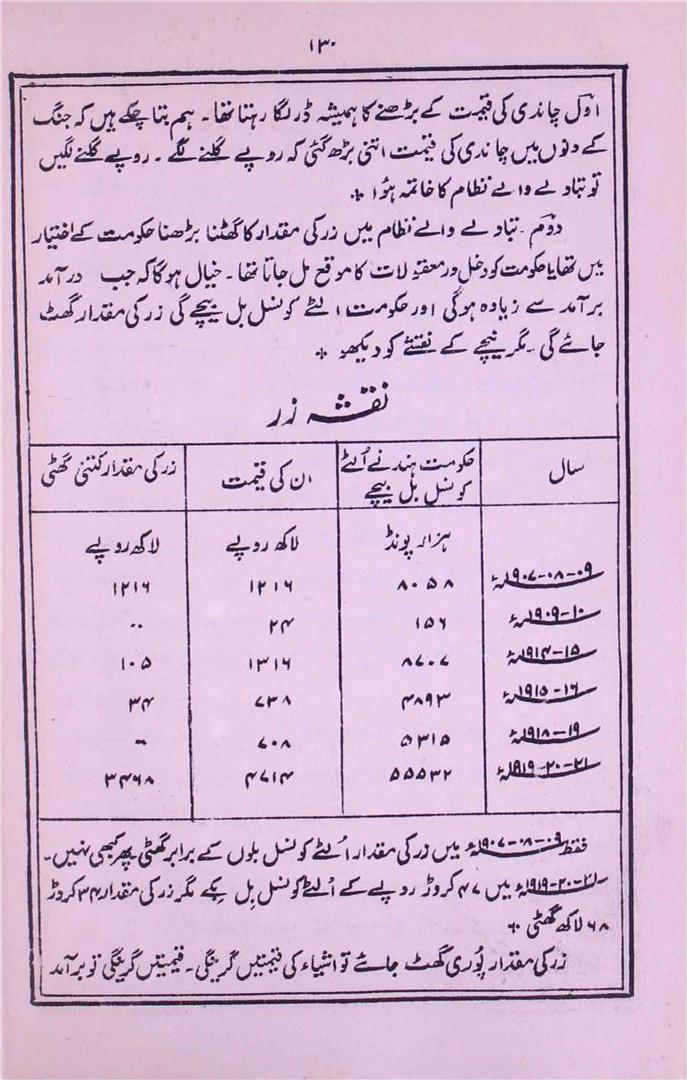 ۱۳۰
اوّل چاندی کی قیمت کے بڑھنے کا ہمیشہ ڈر لگا رہتا تھا۔ ہم بتا چکے ہیں کہ جنگ
کے دنوں میں چاندی کی قیمت اتنی بڑھ گئی کہ روپے گلنے لگے۔ روپے گلنے لگیں
تو تبادلے والے نظام کا خاتمہ ہؤا ٭
دوم۔ تبادلے والے نظام میں زر کی مقدار کا گھٹنا بڑھنا حکومت کے اختیار
میں تھا یا حکومت کو دخل در معقولات کا موقع مل جاتا تھا۔ خیال ہوگا کہ جب درآمد
برآمد سے زیادہ ہوگی اور حکومت الٹے کونسل بل بیچے گی زر کی مقدار گھٹ
جائے گی۔ مگر نیچے کے نقشے کو دیکھو ٭
نقشہ زر
سال | حکومت ہند نے اُلٹے کونسل بل بیچے | ان کی قیمت | زر کی مقدار کتنی گھٹی
ہزار پونڈ | لاکھ روپے | لاکھ روپے
۱۹۰۷-۰۸-۰۹ء | ۸۰۵۸ | ۱۲۱۶ | ۱۲۱۶
۱۹۰۹-۱۰ء | ۱۵۶ | ۲۴ | ۰۰
۱۹۱۴-۱۵ء | ۸۷۰۷ | ۱۳۱۶ | ۱۰۵
۱۹۱۵-۱۶ء | ۴۸۹۳ | ۷۳۸ | ۳۴
۱۹۱۸-۱۹ء | ۵۳۱۵ | ۷۰۸
۱۹۱۹-۲۰-۲۱ء | ۵۵۵۳۲ | ۴۷۱۴ | ۳۴۶۸
فقط ۱۹۰۷-۰۸-۰۹ء میں زر کی مقدار الٹے کونسل بلوں کے برابر گھٹی پھر کبھی نہیں۔
۱۹۱۹-۲۰-۲۱ء میں ۴۷ کروڑ روپے کے الٹے کونسل بل بکے مگر زر کی مقدار ۳۴ کروڑ
۶۸ لاکھ گھٹی ٭
زر کی مقدار پُوری گھٹ جائے تو اشیاء کی قیمتیں گرینگی۔ قیمتیں گرینگی تو برآمد